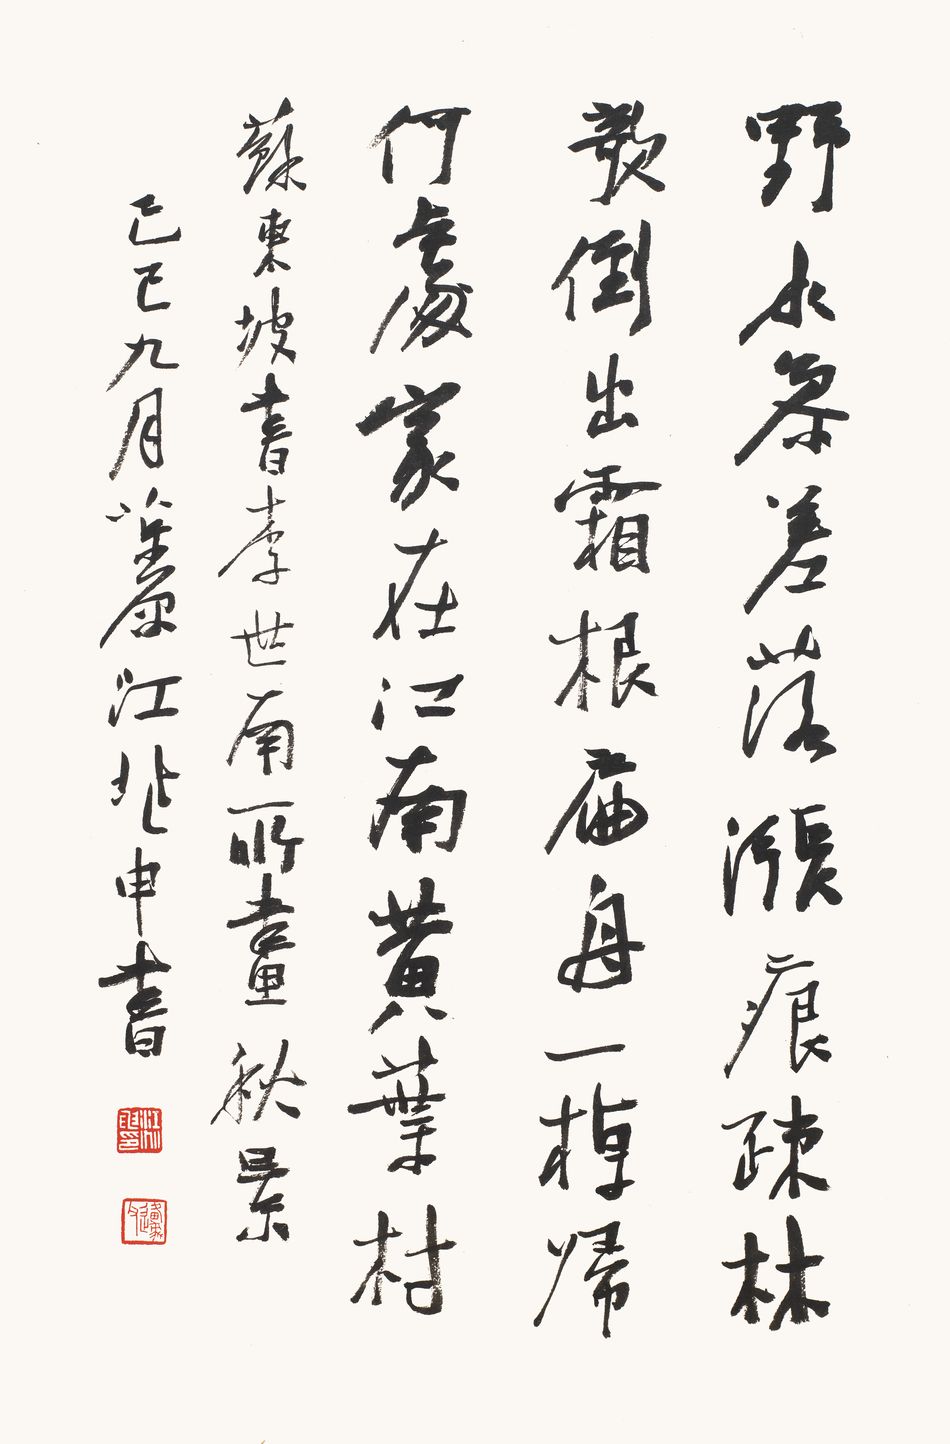 野水參差落漲痕疎林
欹倒出霜根扁舟一棹歸
何處家在江南黃葉村
蘇東坡書李世南所畫秋景
己巳九月茮原江兆申書
江兆申印